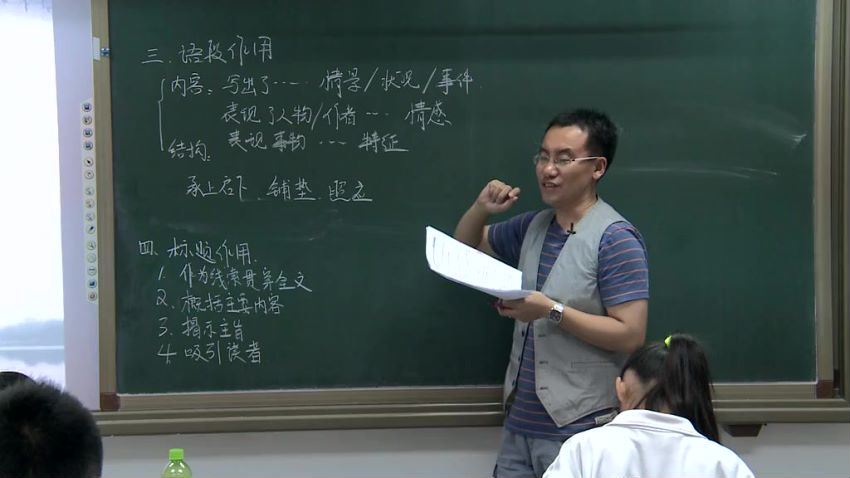 三、语段作用
内容：写出了…… 情景/状况/事件
表现了人物/作者… 情感
表现事物 … 特征
结构：
承上启下、铺垫、照应
四、标题作用
1. 作为线索贯穿全文
2. 概括主要内容
3. 揭示主旨
4. 吸引读者